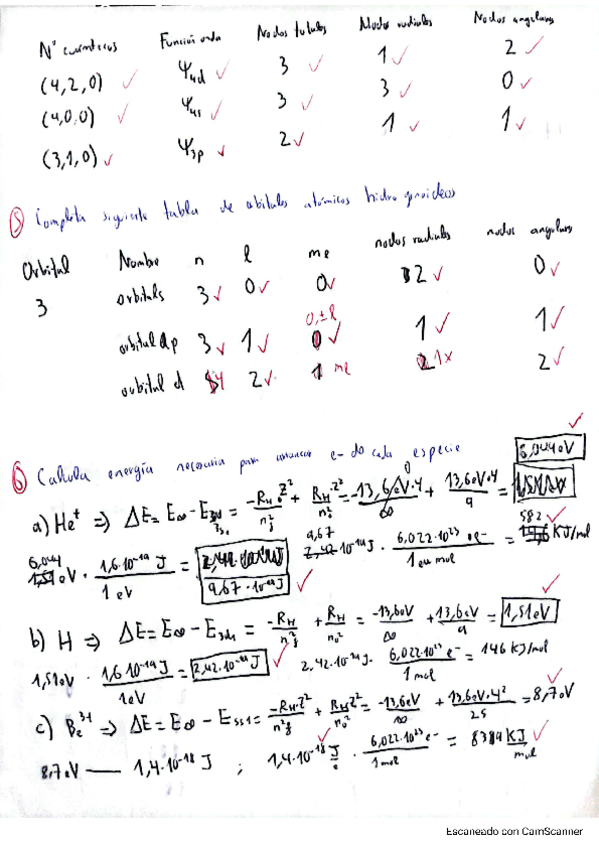 Nº cuánticos Función onda Nodos totales Nodos radiales Nodos angulares
(4,2,0) ✓ Ψ4d ✓ 3 ✓ 1 ✓ 2 ✓
(4,0,0) ✓ Ψ4s ✓ 3 ✓ 3 ✓ 0 ✓
(3,1,0) ✓ Ψ3p ✓ 2 ✓ 1 ✓ 1 ✓
⑤ Completa siguiente tabla de orbitales atómicos hidrogenoideos
Orbital Nombre n l me nodos radiales nodos angulares
3 orbital s 3 ✓ 0 ✓ 0 ✓ 2 ✓ 0 ✓
0, ± l
orbital p 3 ✓ 1 ✓ 0 ✓ 1 ✓ 1 ✓
orbital d 4 2 ✓ 1 me 1 x 2 ✓
⑥ Calcula energía necesaria para arrancar e- de cada especie
6,044 eV ✓
a) He+ ⇒ ΔE = E∞ - E3d = -RH·Z²/nf² + RH·Z²/n0² = -13,6 eV·4/∞ + 13,6 eV·4/9 =
6,044 eV · 1,6·10-19 J / 1 eV = 9,67·10-19 J ✓ 9,67 ·10-19 J · 6,022·10²³ e- / 1 mol = 582 KJ/mol ✓
b) H ⇒ ΔE = E∞ - E3d = -RH/nf² + RH/n0² = -13,6 eV/∞ + 13,6 eV/9 = 1,51 eV ✓
1,51 eV · 1,6·10-19 J / 1 eV = 2,42·10-19 J ✓ 2,42·10-19 J · 6,022·10²³ e- / 1 mol = 146 KJ/mol
c) Be3+ ⇒ ΔE = E∞ - E5s = -RH·Z²/nf² + RH·Z²/n0² = -13,6 eV/∞ + 13,6 eV·4²/25 = 8,70 eV ✓
8,7 eV — 1,4·10-18 J ; 1,4·10-18 J · 6,022·10²³ e- / 1 mol = 838 KJ/mol ✓
Escaneado con CamScanner